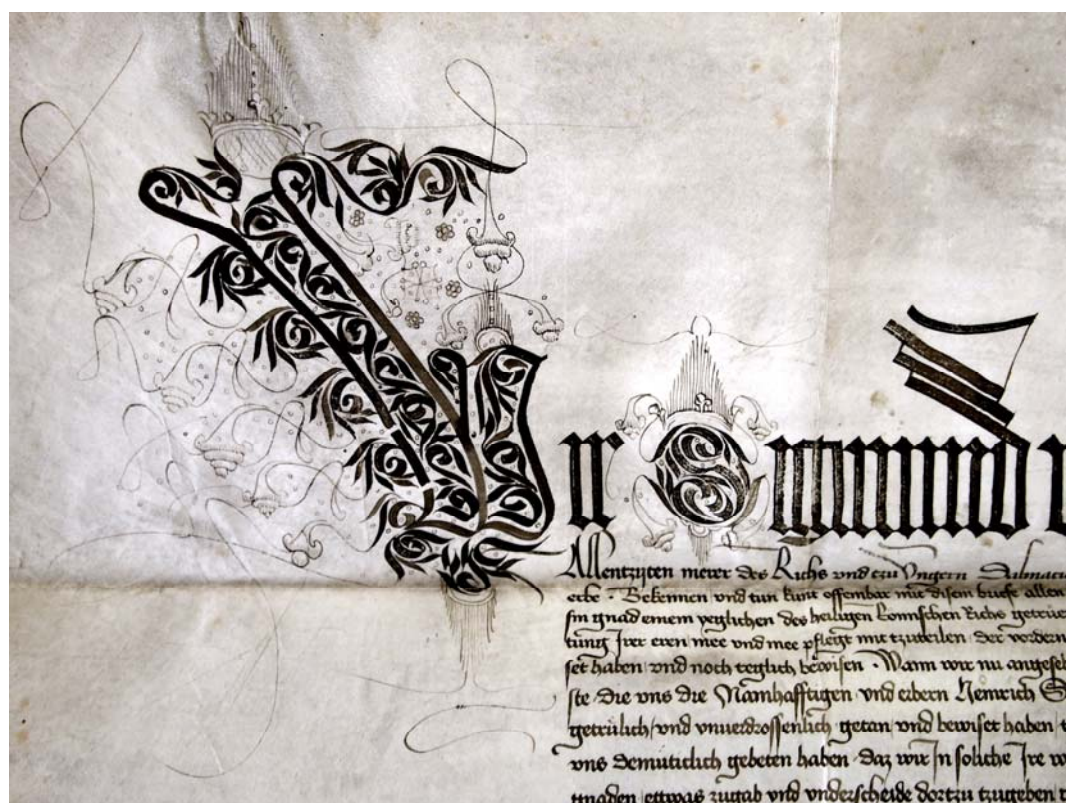 Wir Sigmund v
Allentzyten merer des Richs und tzu Ungern Dalmaci
erbe · Bekennen und tun kunt offenbar mit disem briefe allen
sin gnad einem yeglichen des heiligen Romischen Richs getrue
tung Irer eren mee und mee pflegt mit tzuteilen der vordern
set haben und noch teglich bewisen · Wann wir nu angeseh
ste die uns die Namhafftigen und erbern Heinrich S
getrulich und unverdrossenlich getan und bewiset haben
uns demuticlich gebeten haben daz wir In soliche Ire w
gnaden ettwas zugab und underscheide dortzu tzugeben